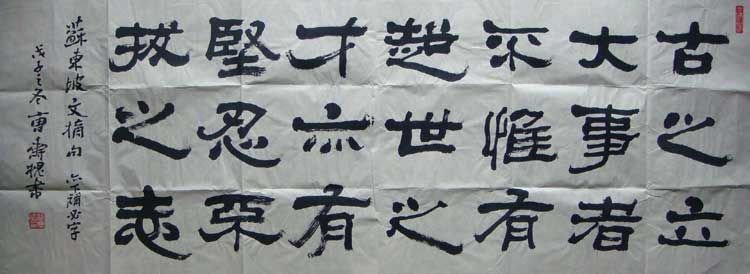 古之立
大事者
不惟有
超世之
才亦有
堅忍不
拔之志
蘇東坡文摘句 亦下補必字
戊子之冬曹壽槐書